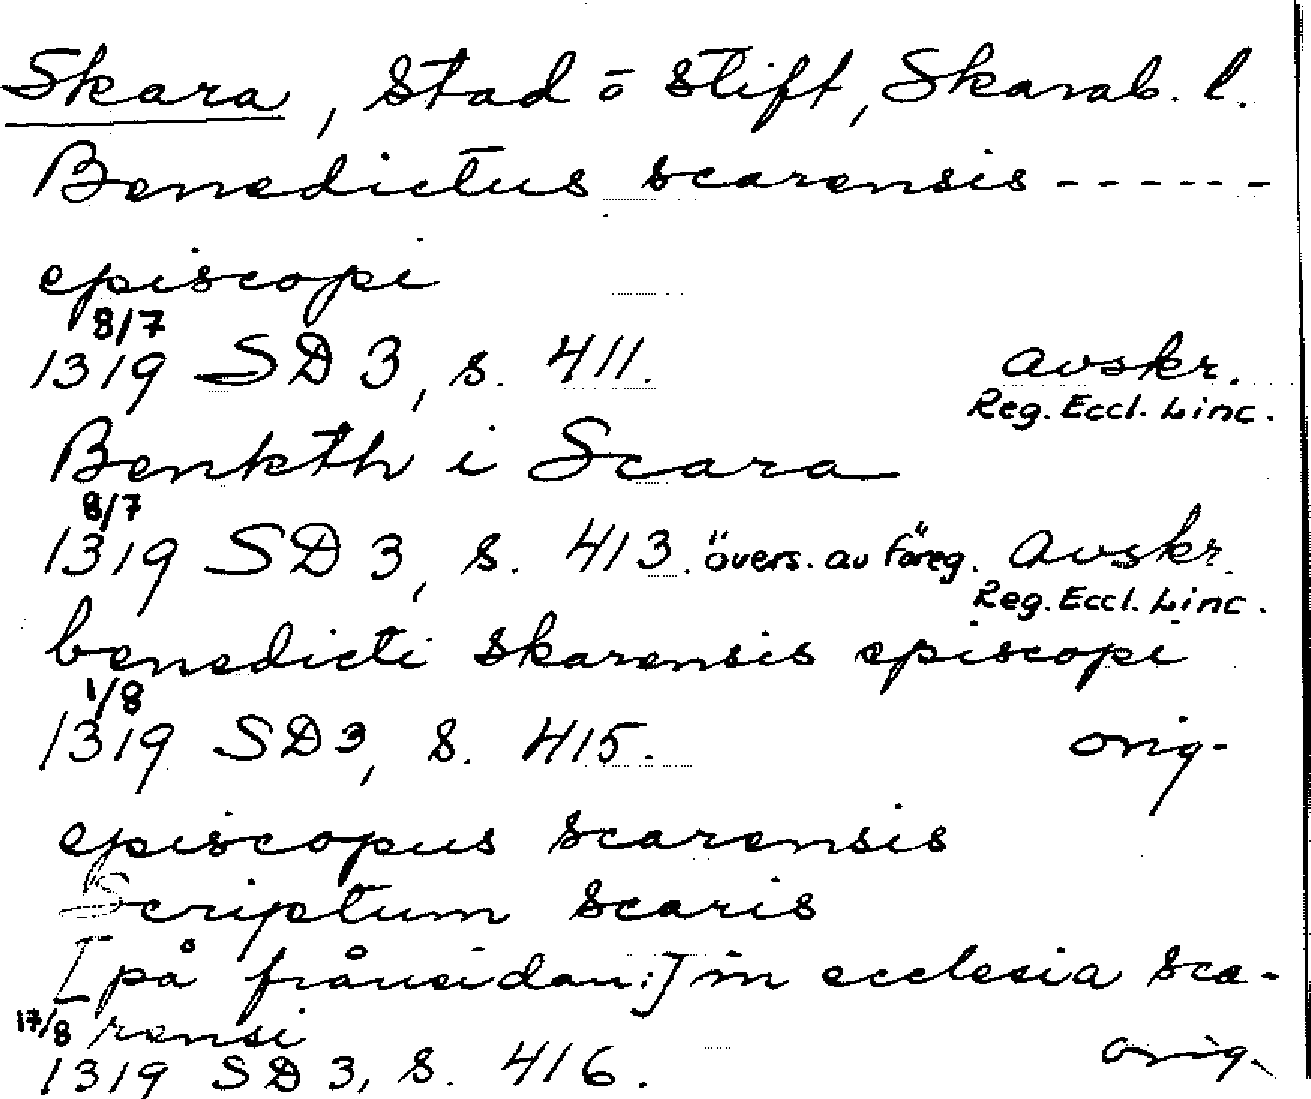 Skara, stad o stift, Skarab. l.
Benedictus scarensis ------
episcopi
8/7
1319 SD 3, s. 411. avskr.
Reg. Eccl. Linc.
Benkth i Scara
8/7
1319 SD 3, s. 413. övers. av föreg. avskr.
Reg. Eccl. Linc.
benedicti skarensis episcopi
1/8
1319 SD 3, s. 415. orig.
episcopus scarensis
Scriptum scaris
[på frånsidan:] in ecclesia sca-
17/8 rensi
1319 SD 3, s. 416. orig.